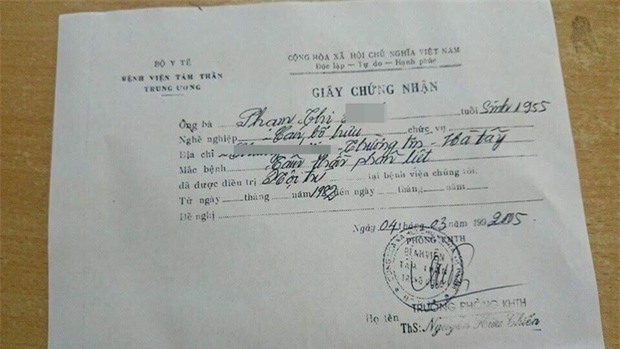 BỘ Y TẾ
BỆNH VIỆN TÂM THẦN
TRUNG ƯƠNG
CỘNG HÒA XÃ HỘI CHỦ NGHĨA VIỆT NAM
Độc lập - Tự do - Hạnh phúc
GIẤY CHỨNG NHẬN
Ông bà Phạm Thị tuổi Sinh 1955
Nghề nghiệp Cán bộ hưu chức vụ
Địa chỉ - Thường tín - Hà tây
Mắc bệnh Tâm thần phân liệt
đã được điều trị Nội trú tại bệnh viện chúng tôi.
Từ ngày tháng năm 1982 đến ngày tháng năm
Đề nghị
Ngày 04 tháng 03 năm 199 2005
PHÒNG KHTH
BỆNH VIỆN
TÂM THẦN
TRƯỞNG PHÒNG KHTH
Họ tên ThS: Nguyễn Hữu Chiến